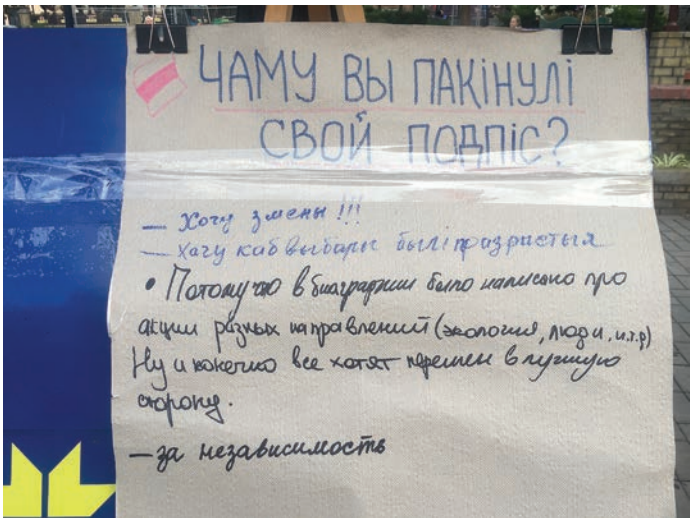 ЧАМУ ВЫ ПАКІНУЛІ
СВОЙ ПОДПІС?
– Хочу змены !!!
– Хачу каб выбары былі празрыстыя
• Потому что в биаграфии было написано про
акции разных направлений (экология, люди, и.т.д)
Ну и конечно все хотят перемен в лучшую
сторону.
– за независимость